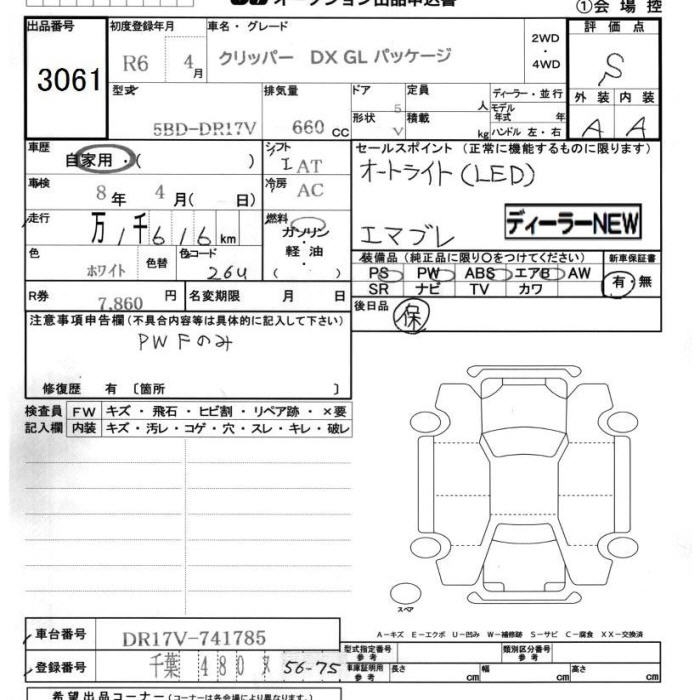 オークション出品申込書
①会場控
出品番号
3061
初度登録年月
R6 4月
車名・グレード
クリッパー DX GL パッケージ
2WD
・
4WD
評価点
S
型式
5BD-DR17V
排気量
660 CC
ドア
5
形状
V
定員
人
積載
kg
ディーラー・並行
モデル
年式 年
ハンドル 左・右
外装 内装
A A
車歴
自家用・( )
シフト
I AT
セールスポイント (正常に機能するものに限ります)
オートライト(LED)
エマブレ
ディーラーNEW
車検
8年 4月( 日)
冷房
AC
走行
万 1千 6 1 6 km
燃料
ガソリン
・
軽油
( )
色
ホワイト
色替
色コード
26U
装備品(純正品に限り〇をつけてください)
PS PW ABS エアB AW
SR ナビ TV カワ
新車保証書
有・無
R券
7,860 円
名変期限 月 日
後日品
保
注意事項申告欄(不具合内容等は具体的に記入して下さい)
PW Fのみ
修復歴 有 〔箇所 〕
検査員
記入欄
FW キズ・飛石・ヒビ割・リペア跡・×要
内装 キズ・汚レ・コゲ・穴・スレ・キレ・破レ
スペア
車台番号
DR17V-741785
A-キズ E-エクボ U-凹み W-補修跡 S-サビ C-腐食 XX-交換済
登録番号
千葉 480 ヌ 56-75
型式指定番号
参考
類別区分番号
参考
車庫証明用
参考
長さ cm 幅 cm 高さ cm
希望出品コーナー(コーナーは各会場により異なります。)